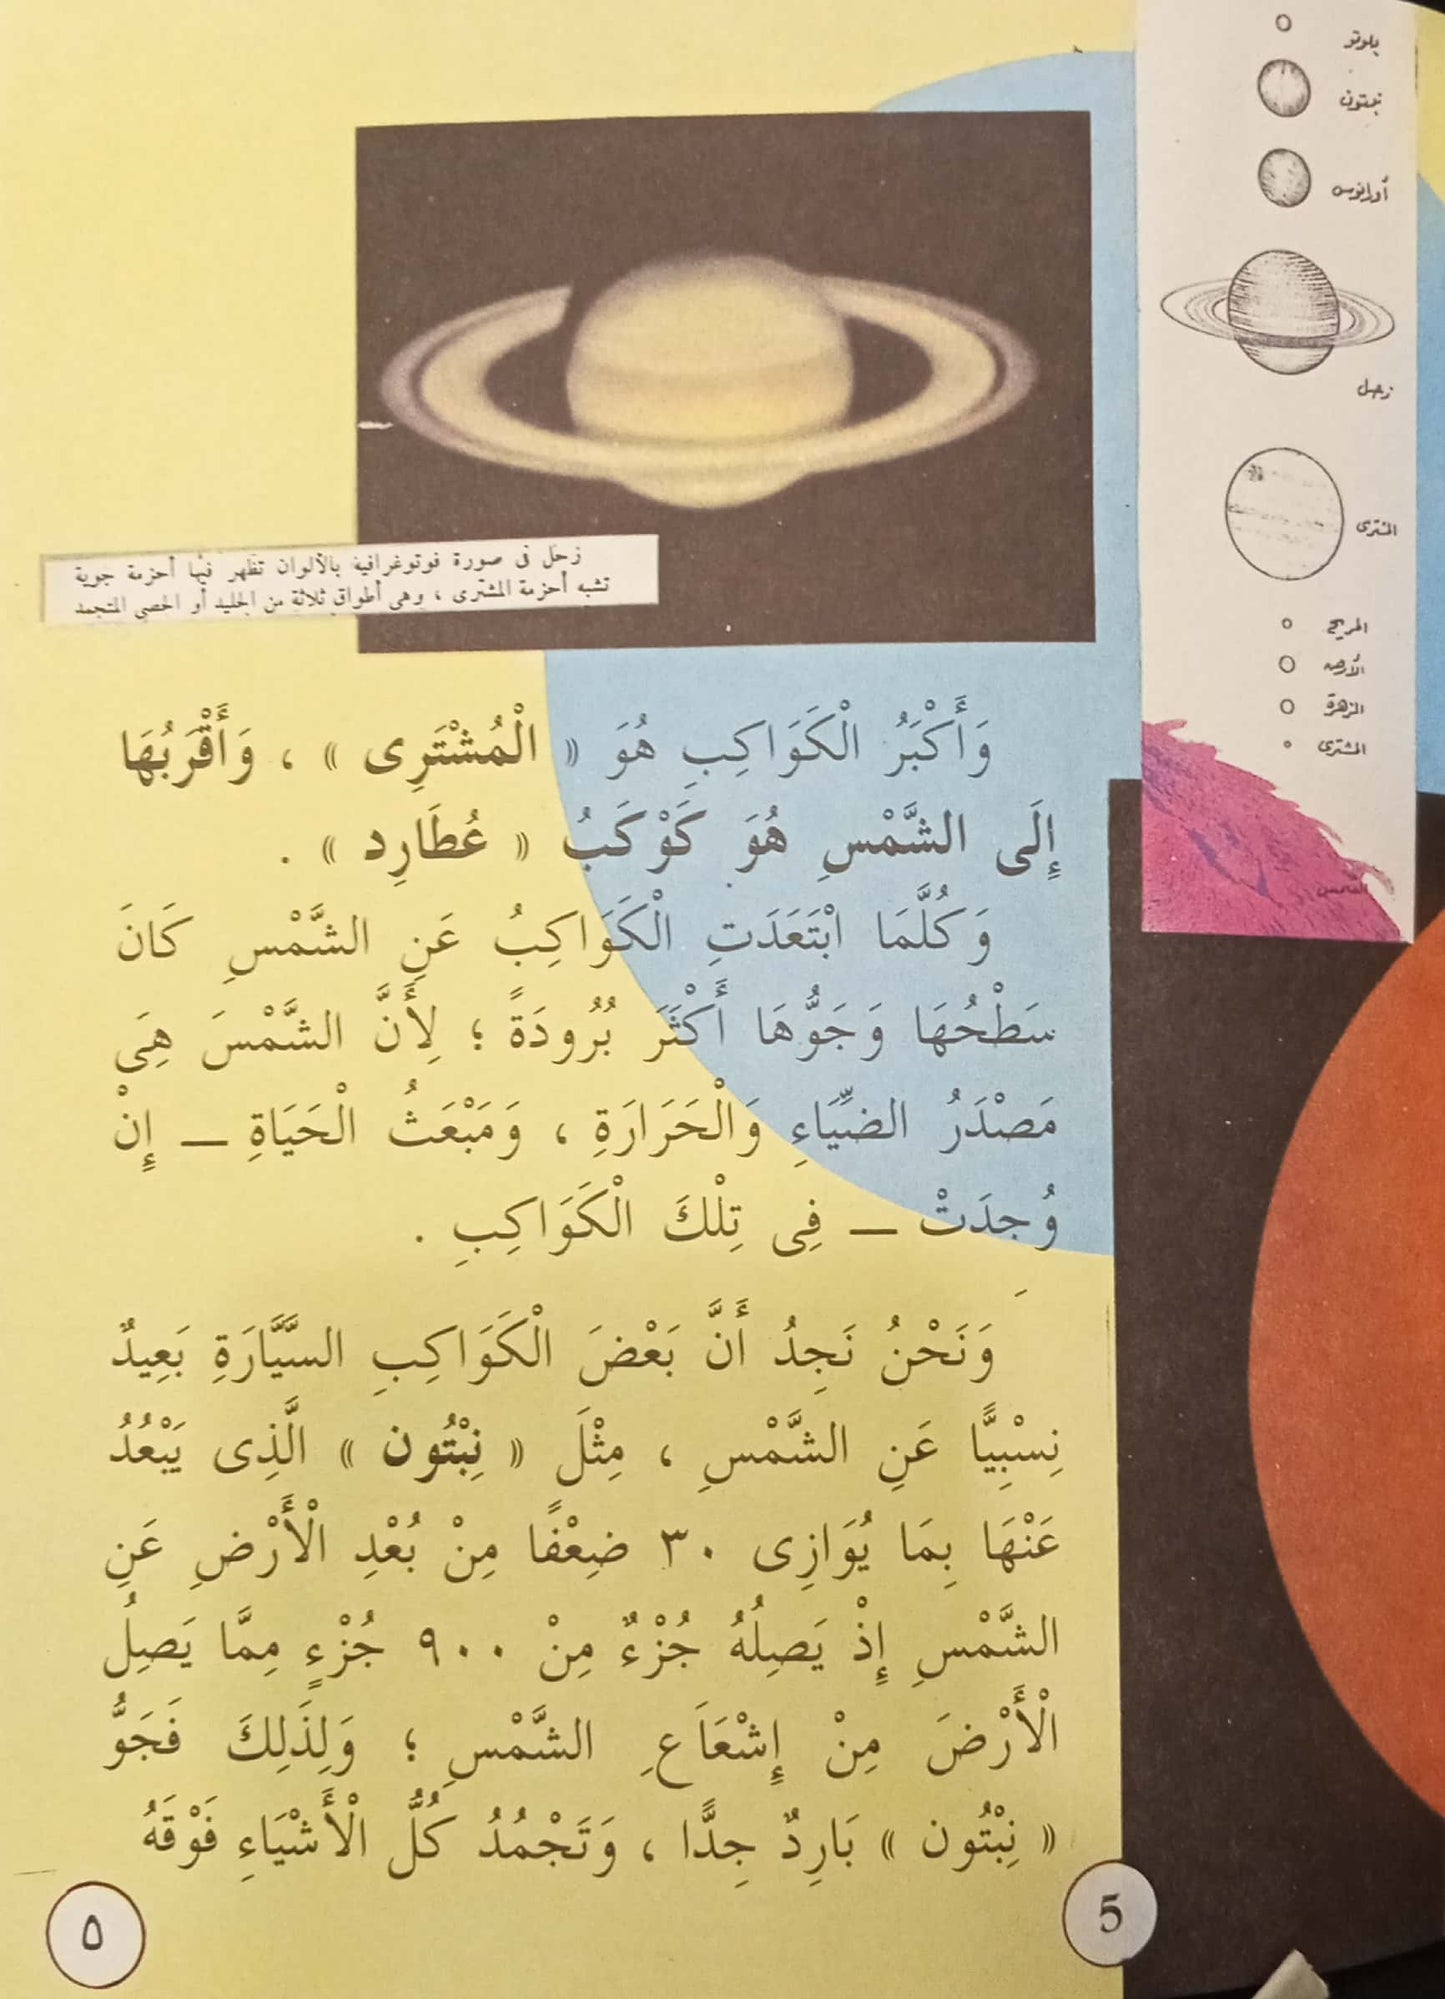 بلوتو
نبتون
أورانوس
زحل
المشترى
المريخ
الأرض
الزهرة
المشترى
الشمس
زحل فى صورة فوتوغرافية بالألوان تظهر فيها أحزمة جوية
تشبه أحزمة المشترى ، وهى أطواق ثلاثة من الجليد أو الحصى المتجمد
وَأَكْبَرُ الْكَوَاكِبِ هُوَ « الْمُشْتَرِى » ، وَأَقْرَبُهَا
إِلَى الشَّمْسِ هُوَ كَوْكَبُ « عُطَارِد » .
وَكُلَّمَا ابْتَعَدَتِ الْكَوَاكِبُ عَنِ الشَّمْسِ كَانَ
سَطْحُهَا وَجَوُّهَا أَكْثَرَ بُرُودَةً ؛ لِأَنَّ الشَّمْسَ هِىَ
مَصْدَرُ الضِّيَاءِ وَالْحَرَارَةِ ، وَمَبْعَثُ الْحَيَاةِ — إِنْ
وُجِدَتْ — فِى تِلْكَ الْكَوَاكِبِ .
وَنَحْنُ نَجِدُ أَنَّ بَعْضَ الْكَوَاكِبِ السَّيَّارَةِ بَعِيدٌ
نِسْبِيًّا عَنِ الشَّمْسِ ، مِثْلَ « نِبْتُون » الَّذِى يَبْعُدُ
عَنْهَا بِمَا يُوَازِى ٣٠ ضِعْفًا مِنْ بُعْدِ الْأَرْضِ عَنِ
الشَّمْسِ إِذْ يَصِلُهُ جُزْءٌ مِنْ ٩٠٠ جُزْءٍ مِمَّا يَصِلُ
الْأَرْضَ مِنْ إِشْعَاَعِ الشَّمْسِ ؛ وَلِذَلِكَ فَجَوُّ
« نِبْتُون » بَارِدٌ جِدًّا ، وَتَجْمُدُ كُلُّ الْأَشْيَاءِ فَوْقَهُ
5
٥